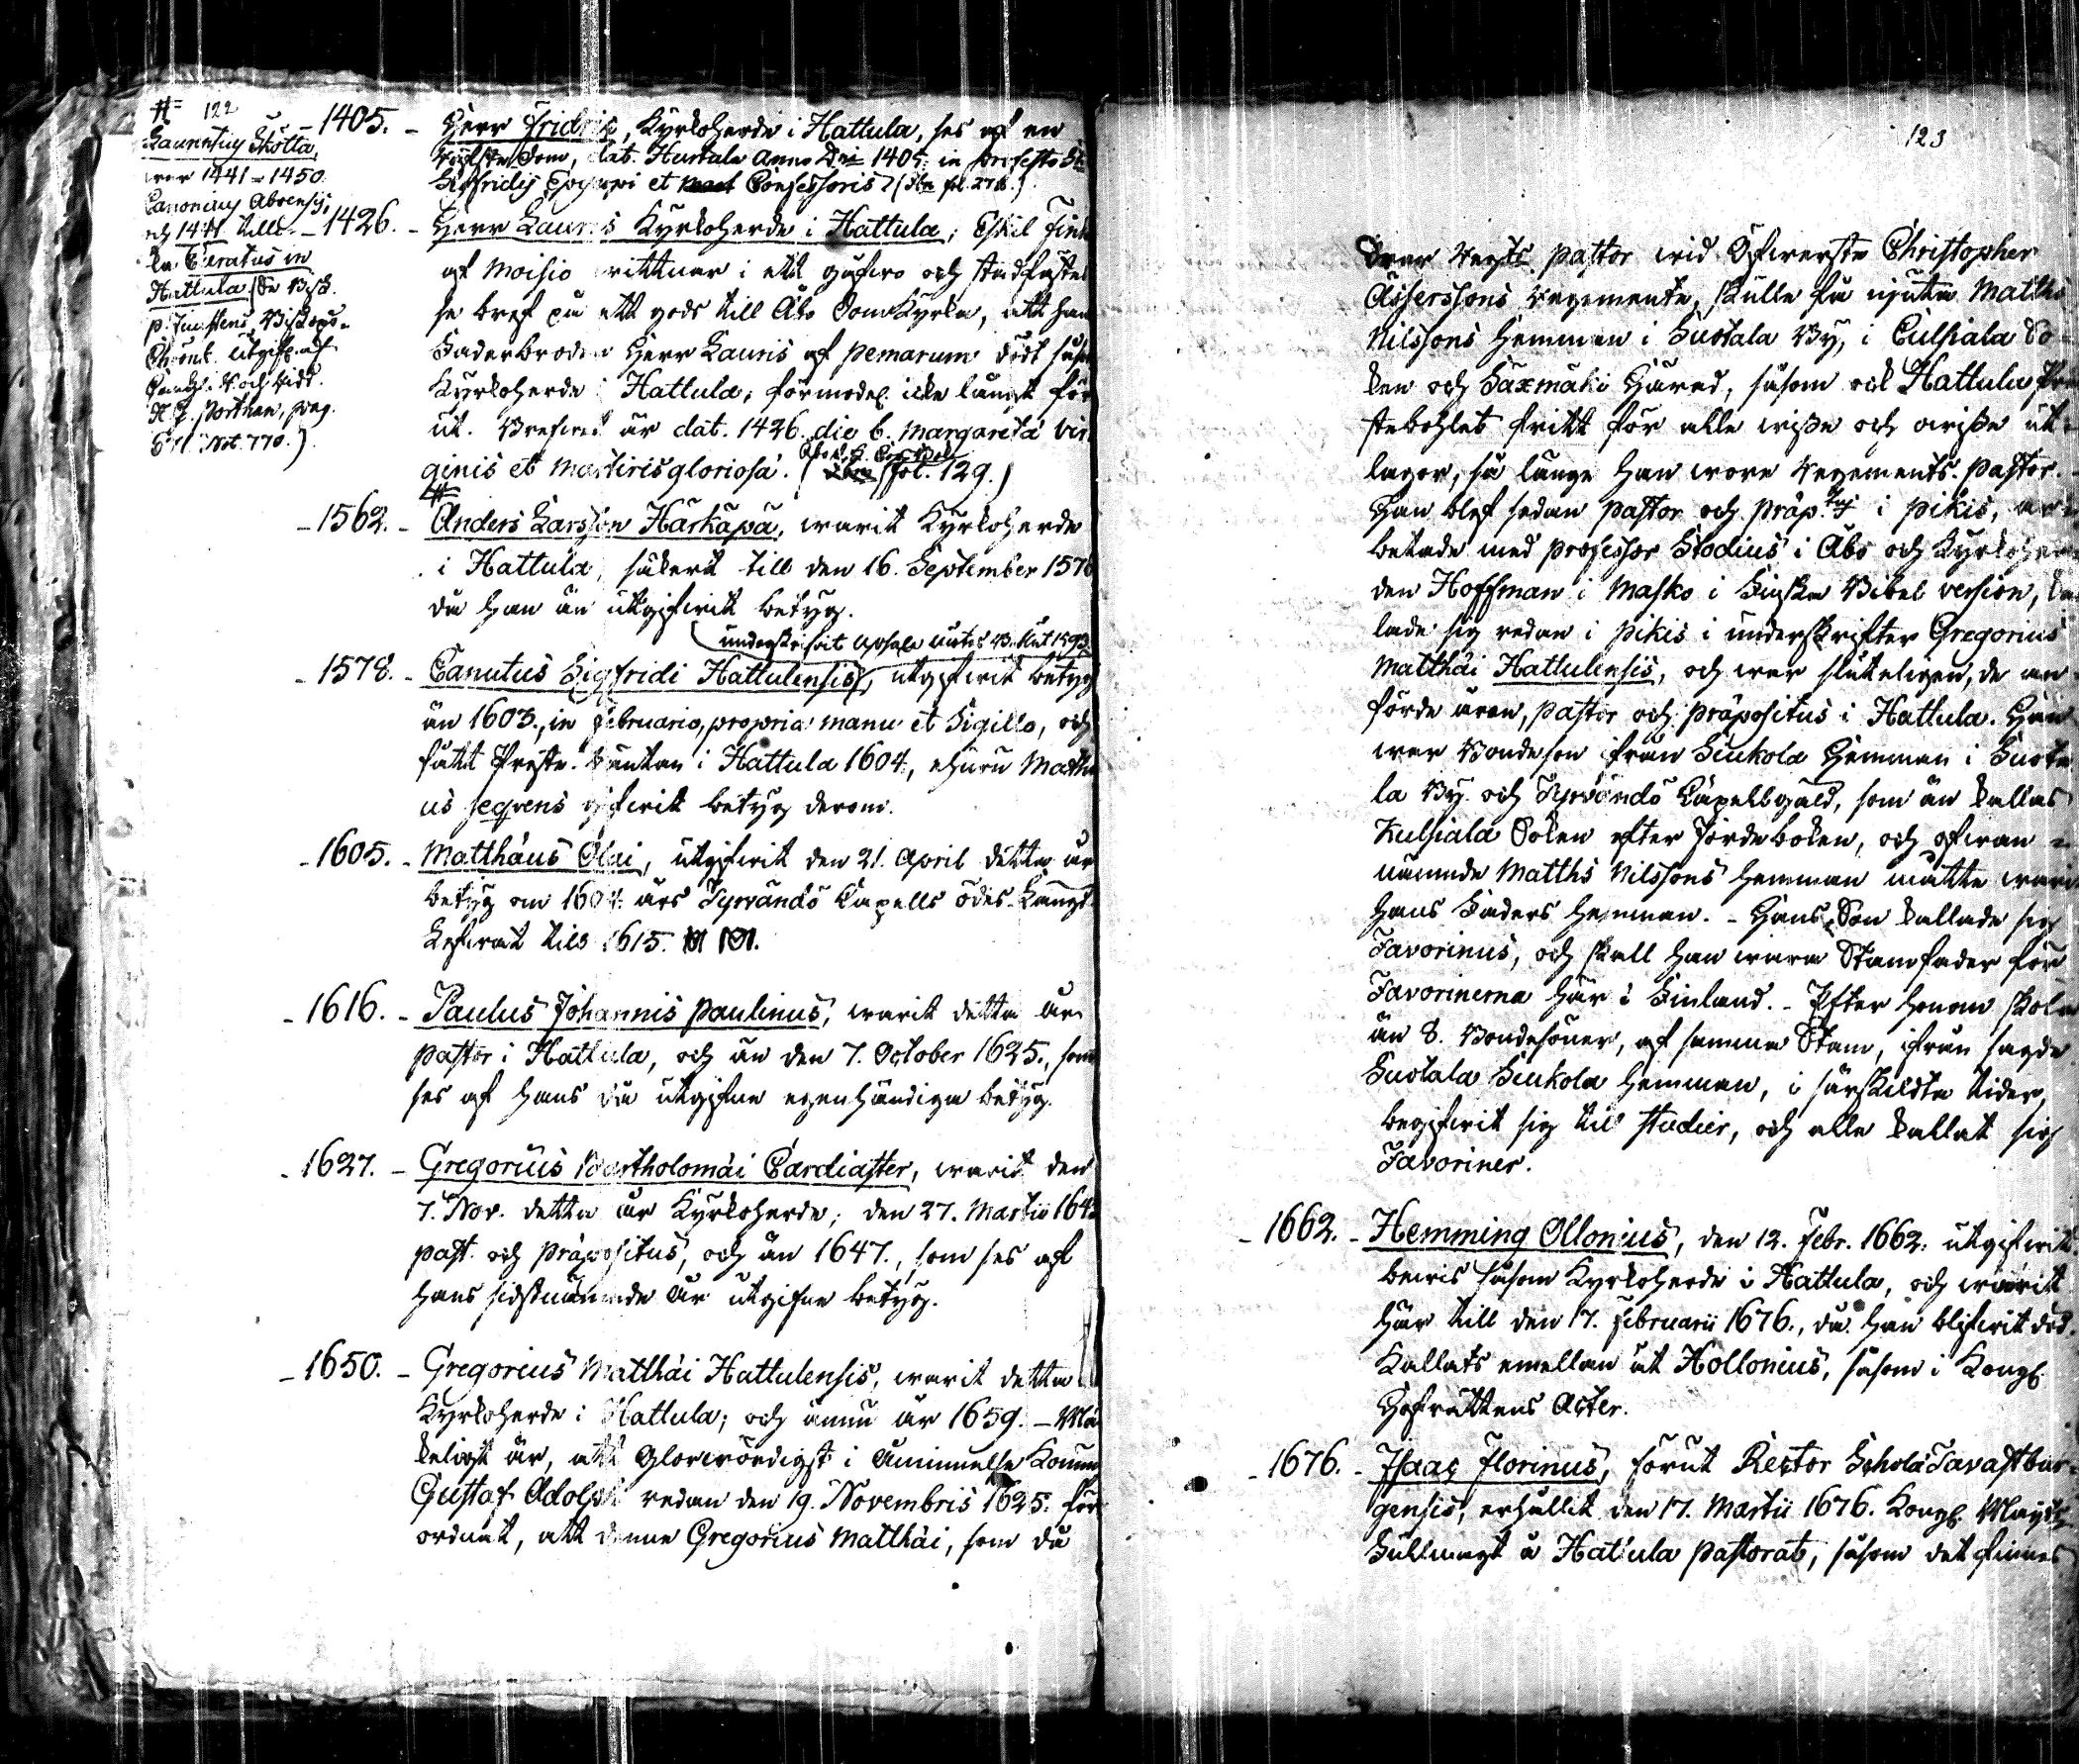 # 122
Laurentius Skötta,
war 1441-1450.
Canonicus Aboensis,
och 1441 till-
la Curatus in
Hattula (se Bisk.
P. Juustens Biskops-
Chrönk. utgifv. af
H. G. Porthan, pag.
Not. 770.)
- 1405. - Herr Fridric, Kyrkoherde i Hattula, ses af en
dom, dat. Hustala Anno Dni 1405. in profesto St
Sigfridij Episcopi et Confessoris (fol. 278.)
- 1426. - Herr Lauris Kyrkoherde i Hattula; Eskil Finke
af Moisio wittnar i ett gåfwo och stadfästel
se bref på ett gods till Åbo DomKyrka, att han
Faderbroder Herr Lauris af Pemarum dödt såsom
Kyrkoherde i Hattula; förmodel. icke långt för
ut. Brefwet är dat. 1426. die b. Margaretä vir-
ginis et Martiris gloriosä. (fol. 129.)
#
- 1562. - Anders Larsson Härkäpä, warit Kyrkoherde
i Hattula, säkert till den 16. September 1578
då han än utgifwit betyg.
(underskrifwit Upsala möte 1593.
- 1578. - Canutus Sigfridi Hattulensis, utgifwit betyg
än 1603., in Februario, propria manu et Sigillo, och
fått Preste-Räntan i Hattula 1604, ehuru Matthä
us seqvens gifwit betyg derom.
- 1605. - Matthäus Olai, utgifwit den 21. April detta år
betyg om 1604. års Tyrväntö Capells ödes-Längd.
Lefwat till 1615.
- 1616. - Paulus Johannis Paulinus, warit detta år
Pastor i Hattula, och än den 7. October 1625., som
ses af hans då utgifne egenhändiga betyg.
- 1627. - Gregorius Bartholomäi Cardiaster, warit den
7. Nov. detta år Kyrkoherde; den 27. Martii 1643
past. och Präpositus, och än 1647., som ses af
hans sidstnämnde år utgifne betyg.
- 1650. - Gregorius Matthäi Hattulensis, warit detta år
Kyrkoherde i Hattula; och ännu år 1659. - Mär
keligt är, att Glorwördigst i Åminnelse Konung
Gustaf Adolph redan den 19. Novembris 1625. för
ordnat, att denne Gregorius Matthäi, som då
123
war Regts Pastor wid Öfwerste Christopher
Assersons Regemente, skulle få njuta Matths
Nilssons hemman i Suotala By, i Culsiala So-
ken och Säxmäki Härad, såsom ock Hattula Pre
stebohlet fritt för alla wisse och owisse ut-
lagor, så länge han wore Regements-Pastor.
Han blef sedan Pastor och Präp.tus i Pikis, ar-
betade med Professor Stodius i Åbo och Kyrkoher-
den Hoffman i Masko i Finska Bibel version, kal
lade sig redan i Pikis i underskrifter Gregorius
Matthäi Hattulensis, och war sluteligen, de an-
förde åren, Pastor och Präpositus i Hattula. Han
war Bondeson ifrån Siukola Hemman i Suota
la By och Tyrväntö Capellsgäld, som än kallas
Kulsiala Soken efter Jordeboken, och ofwan-
nämnde Matths Nilssons hemman måtte warit
hans Faders hemman. - Hans Son kallade sig
Favorinus, och skall han wara Stamfader för
Favorinerna här i Finland. - Efter honom skola
än 8. Bondesöner, af samma Stam, ifrån sagde
Suotala Siukola hemman, i särskildta tider,
begifwit sig till studier, och alle kallat sig
Favoriner.
- 1662. - Hemming Ollonius, den 12. Febr. 1662. utgifwit
bewis såsom Kyrkoherde i Hattula, och warit
här till den 17. Februarii 1676., då han blifwit död.
Kallats emellan åt Hollonius, såsom i Kongl.
Hofrättens Acter.
- 1676. - Isaac Florinus, förut Rector Scholä Tavastbur-
gensis, erhållit den 17. Martii 1676. Kongl. Mayts
Fullmagt å Hattula Pastorat, såsom det finnes